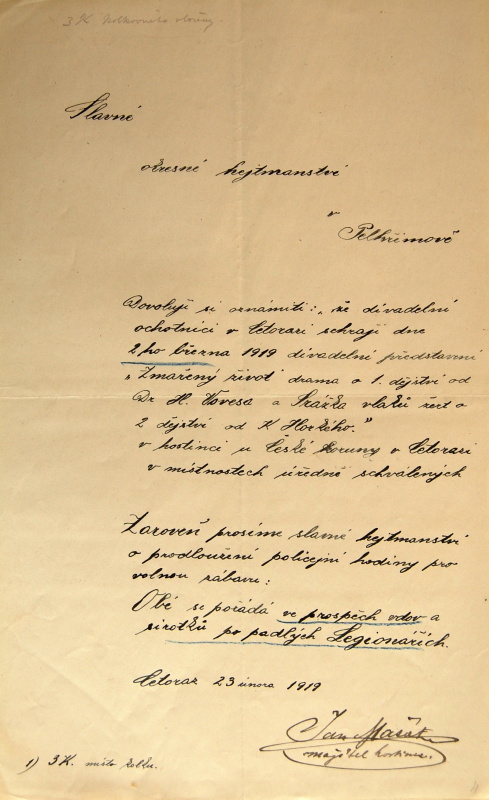 3 K kolkováno
Slavné
okresné hejtmanství
v
Pelhřimově
Dovoluji si oznámiti: že divadelní
ochotníci v Cetorazi sehrají dne
2ho března 1919 divadelní představení
„Zmařený život drama o 1. dějství od
Dr H. Vovesa a Srážka vlaků žert o
2 dějství od K Horkého."
v hostinci u České koruny v Cetorazi
v místnostech úředně schválených
Zároveň prosíme slavné hejtmanství
o prodloužení policejní hodiny pro
volnou zábavu:
Obé se pořádá ve prospěch vdov a
sirotků po padlých Legionářích.
Cetoraz 23 února 1919
Jan Mašát
majitel hostince.
1) 3K. místo kolku.